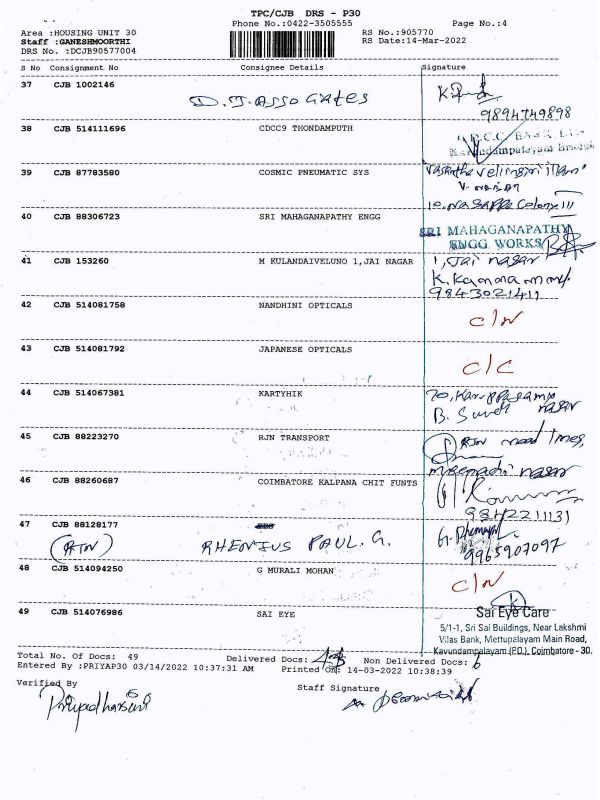 TPC/CJB DRS - P30
Phone No.:0422-3505555 Page No.:4
Area :HOUSING UNIT 30 RS No.:905770
Staff :GANESHMOORTHI RS Date:14-Mar-2022
DRS No. :DCJB90577004
S No Consignment No Consignee Details Signature
37 CJB 1002146 D.J. ASSOCIATES
9894749898
38 CJB 514111696 CDCC9 THONDAMPUTH
39 CJB 87783580 COSMIC PNEUMATIC SYS
40 CJB 88306723 SRI MAHAGANAPATHY ENGG SRI MAHAGANAPATHY
ENGG WORKS
41 CJB 153260 M KULANDAIVELUNO 1,JAI NAGAR 1, Jai nagar
9843021411
42 CJB 514081758 NANDHINI OPTICALS C/N
43 CJB 514081792 JAPANESE OPTICALS C/C
44 CJB 514067381 KARTYHIK
nagar
45 CJB 88223270 RJN TRANSPORT
46 CJB 88260687 COIMBATORE KALPANA CHIT FUNTS nagar
9842211131
47 CJB 88128177 RHENIUS PAUL. G.
(RTN) 9965907097
48 CJB 514094250 G MURALI MOHAN C/N
49 CJB 514076986 SAI EYE Sai Eye Care
5/1-1, Sri Sai Buildings, Near Lakshmi
Vilas Bank, Mettupalayam Main Road,
Kavundampalayam (P.O.), Coimbatore - 30.
Total No. Of Docs: 49 Delivered Docs: 43 Non Delivered Docs: 6
Entered By :PRIYAP30 03/14/2022 10:37:31 AM Printed On: 14-03-2022 10:38:39
Verified By Staff Signature
Priyadharsini